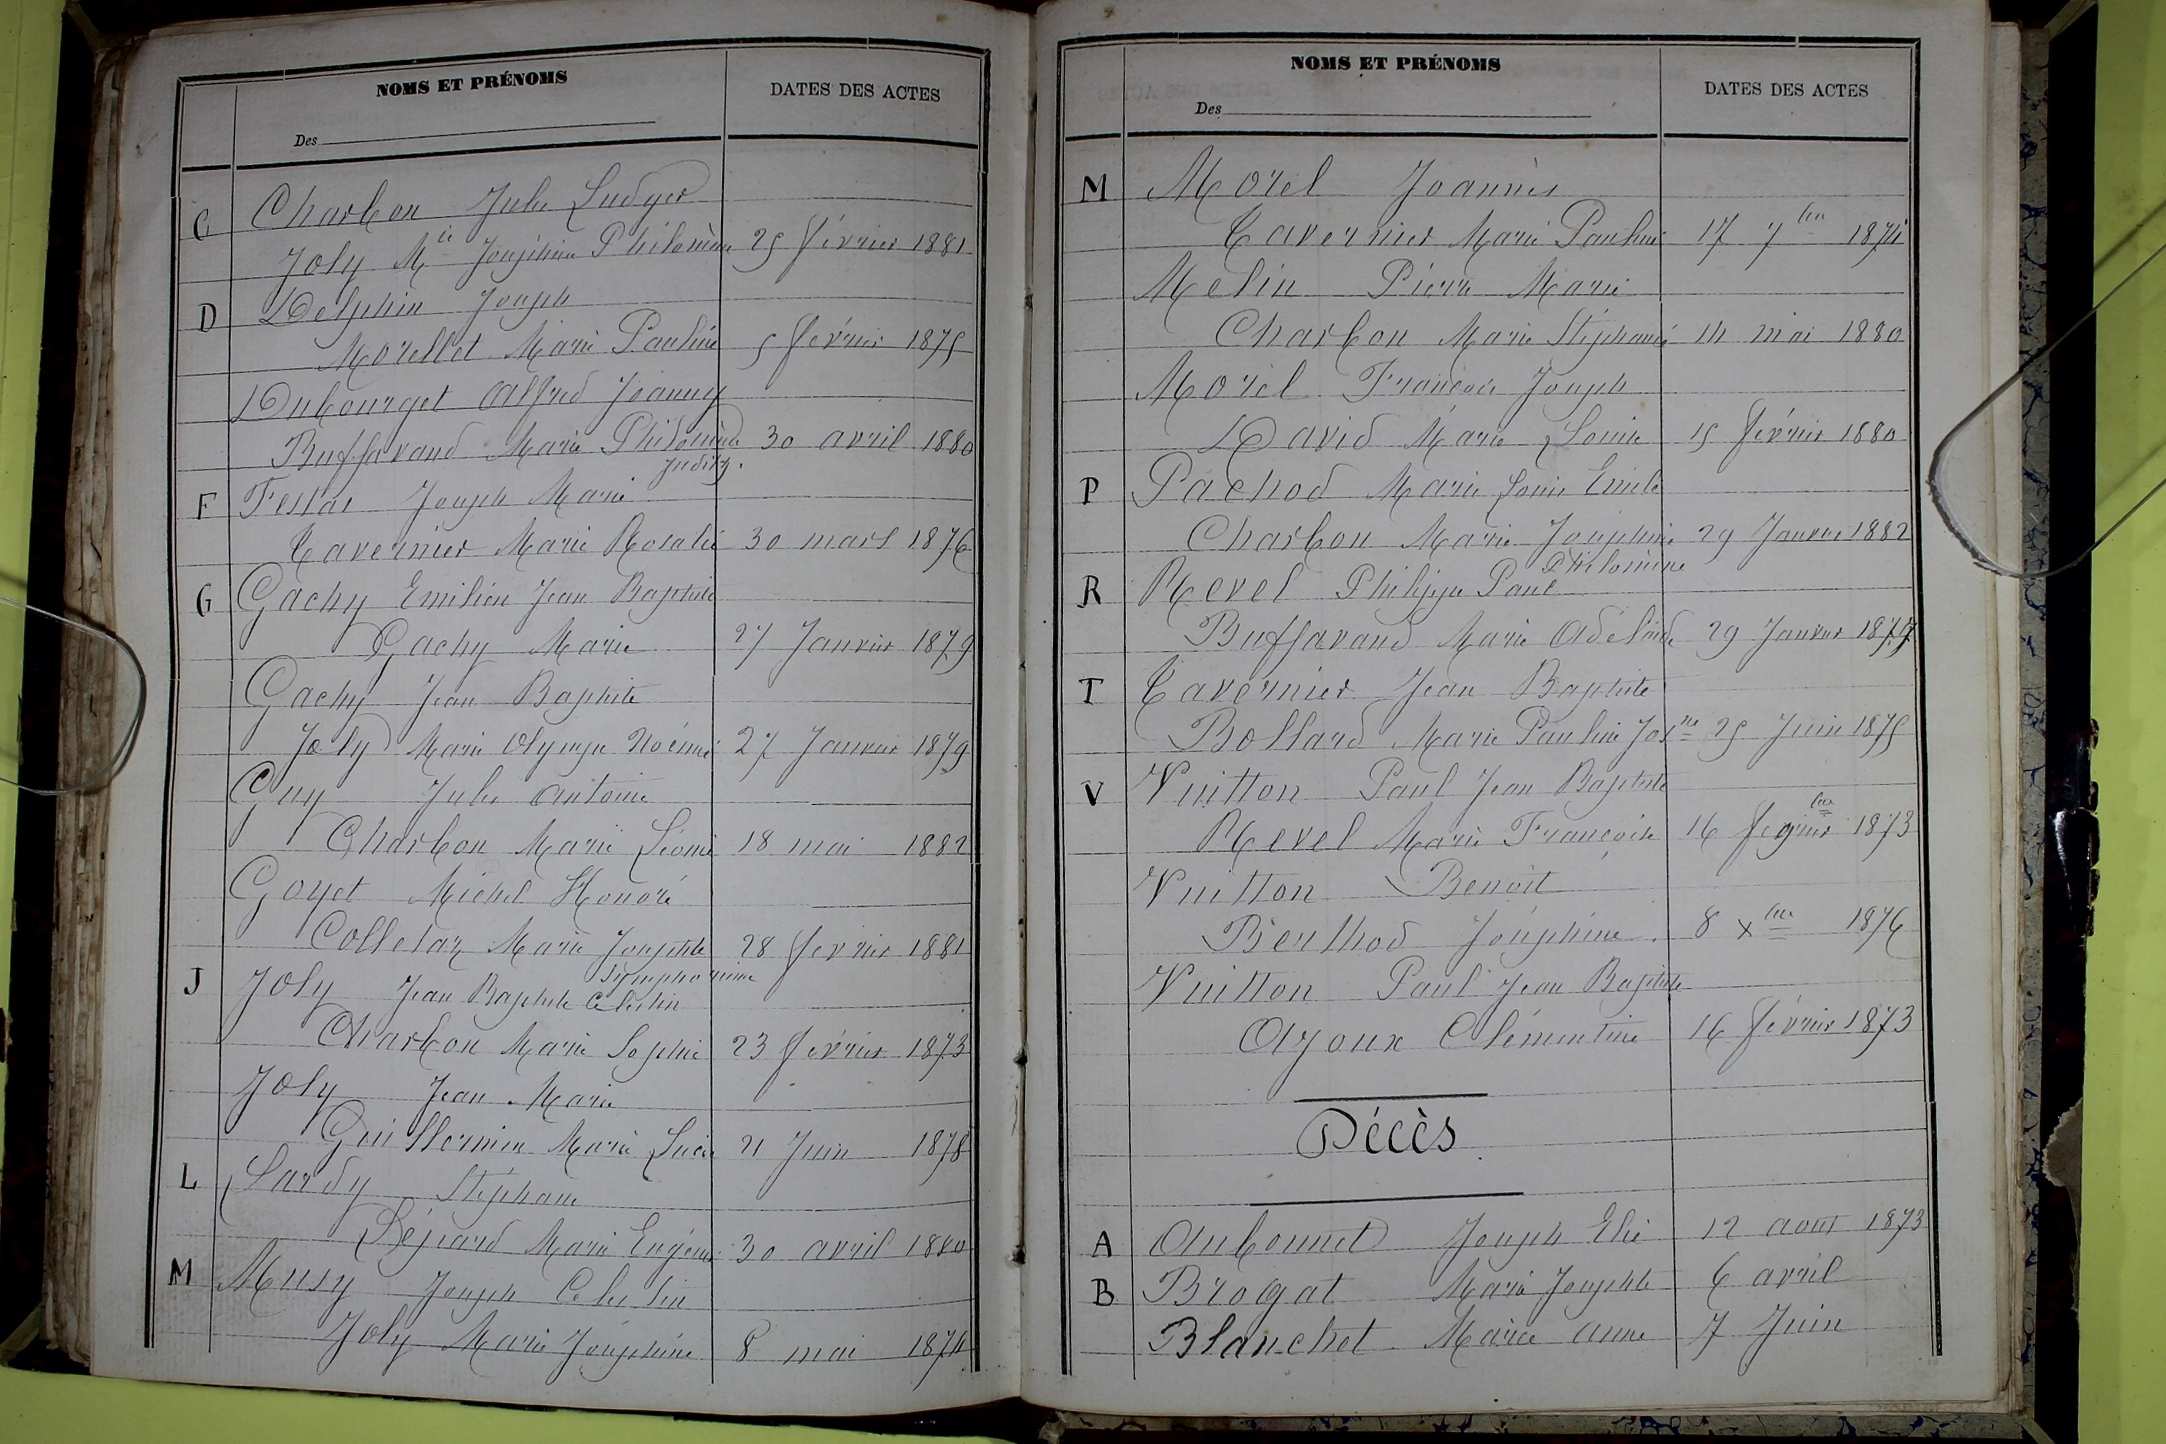 NOMS ET PRÉNOMS
DATES DES ACTES
Des
C Charbon Jules Ludger
Joly Mie Joséphine Philomène 25 février 1881
D Delphin Joseph
Morellet Marie Pauline 5 février 1875
Dubourget Alfred Joanny
Buffavand Marie Philomène 30 avril 1880
Judith.
F Festas Joseph Marie
Tavernier Marie Rosalie 30 mars 1876
G Gachy Emilien Jean Baptiste
Gachy Marie 27 Janvier 1879
Gachy Jean Baptiste
Joly Marie Olympe Noémie 27 Janvier 1879
Guy Jules Antoine
Charbon Marie Léonie 18 mai 1882
Goyet Michel Honoré
Colletaz Marie Josephte 28 février 1881
Symphorienne
J Joly Jean Baptiste Célestin
Charbon Marie Sophie 23 février 1873
Joly Jean Marie
Guillermin Marie Lucie 21 Juin 1878
L Lardy Stéphane
Déjeard Marie Eugénie 30 avril 1880
M Musy Joseph Célestin
Joly Marie Joséphine 8 mai 1874
NOMS ET PRÉNOMS
DATES DES ACTES
Des
M Morel Joannès
Tavernier Marie Pauline 17 7bre 1874
Melin Pierre Marie
Charbon Marie Stéphanie 14 mai 1880
Morel François Joseph
David Marie Louise 15 février 1880
P Pachod Marie Louis Emile
Charbon Marie Joséphine 29 Janvier 1882
Philomène
R Revel Philippe Paul
Buffavand Marie Adélaïde 29 Janvier 1877
T Tavernier Jean Baptiste
Bollard Marie Pauline Josne 25 Juin 1875
V Vuitton Paul Jean Baptiste
Revel Marie Françoise 16 9bre 1873
Vuitton Benoit
Berthod Joséphine 8 xbre 1876
Vuitton Paul Jean Baptiste
Ayoux Clémentine 16 février 1873
Décès
A Aubonnet Joseph Elie 12 août 1873
B Brogat Marie Josephte 6 avril
Blanchet Marie Anne 7 Juin